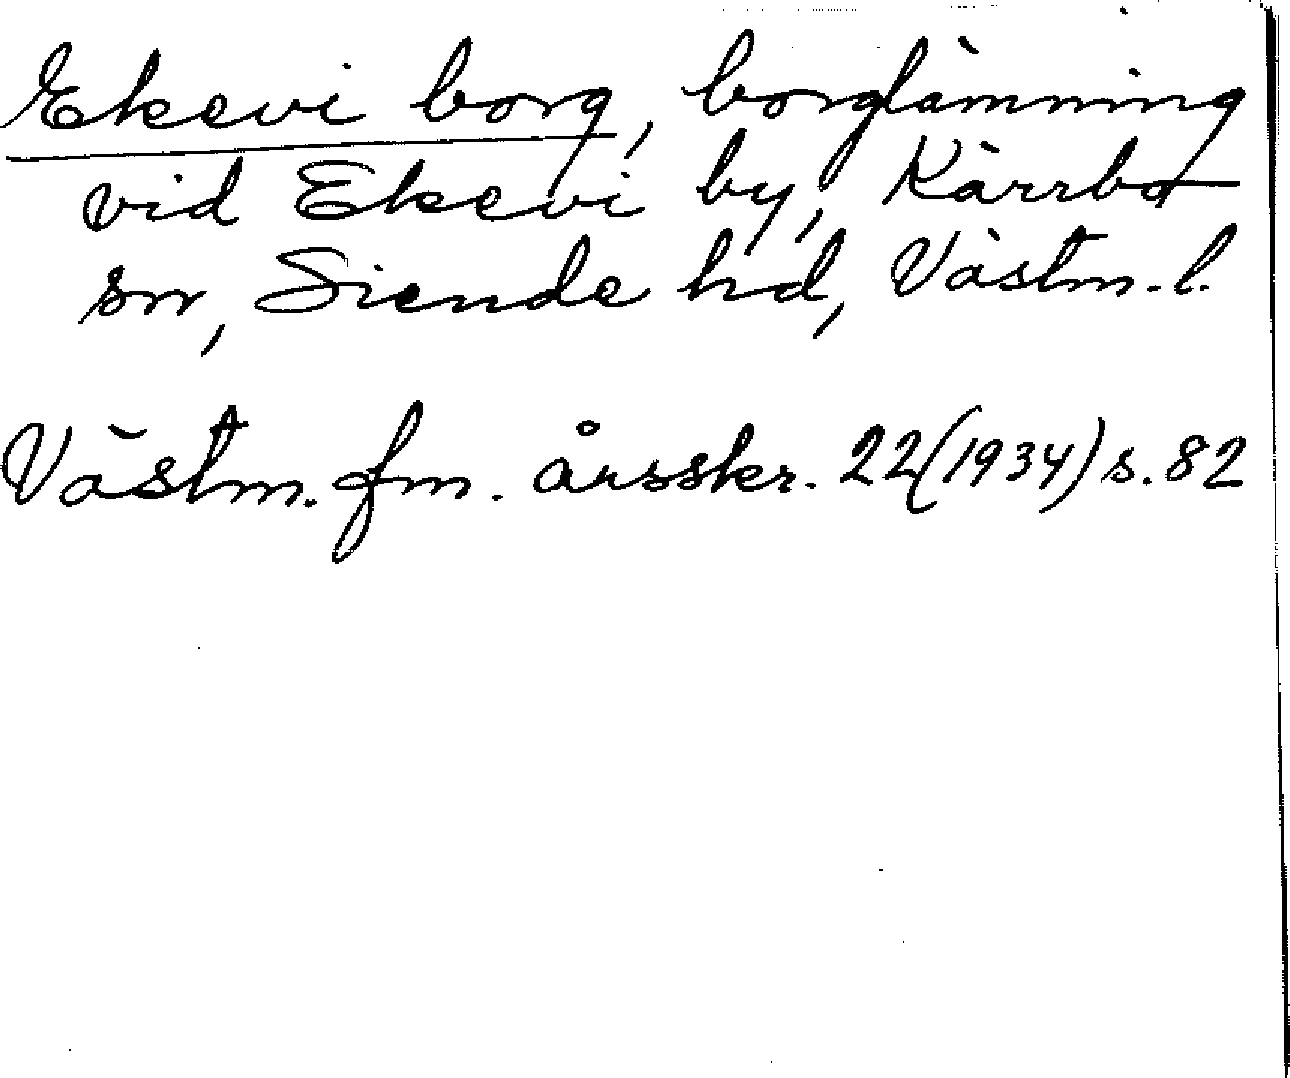 Ekevi borg, borglämning
vid Ekevi by, Kärrbo
sn, Siende hd, Västm. l.
Västm. fm. årsskr. 22 (1934) s. 82